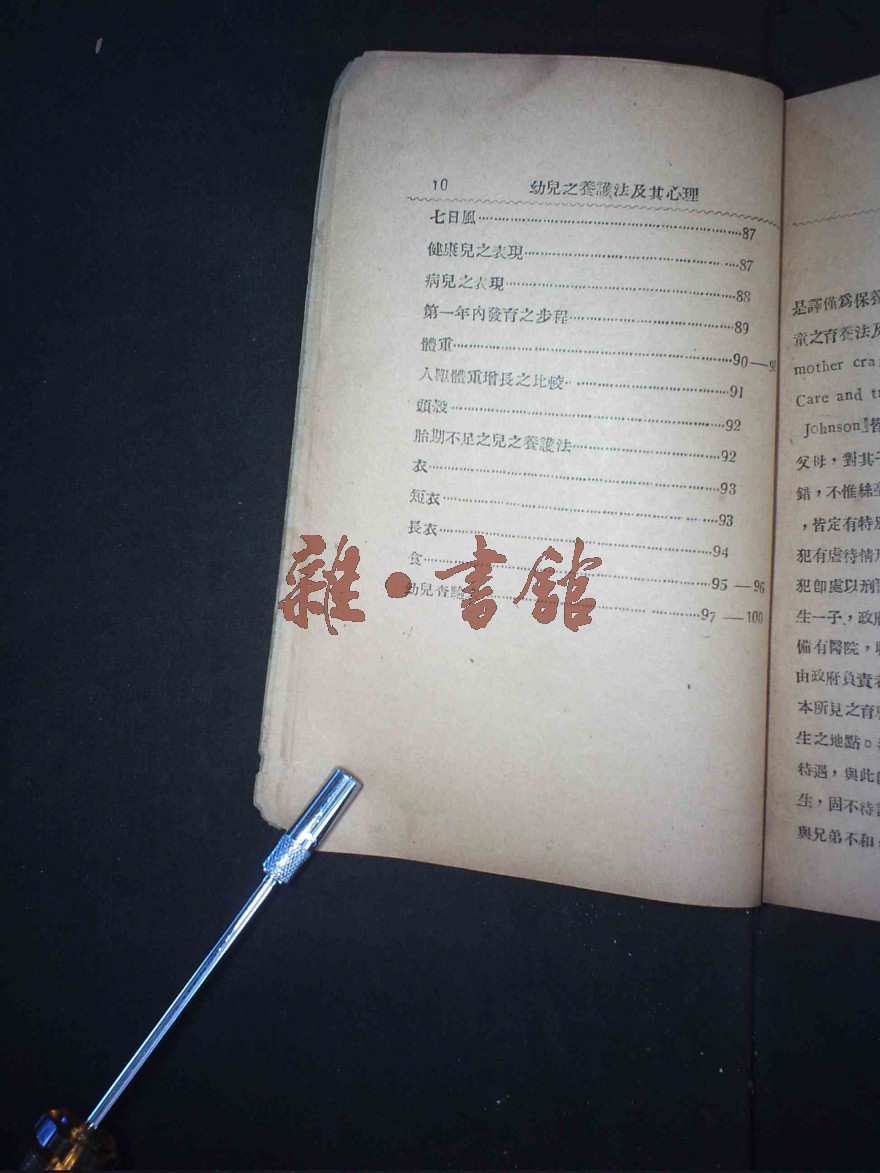 10 幼兒之養護法及其心理
七日風……87
健康兒之表現……87
病兒之表現……88
第一年內發育之步程……89
體重……90—9
人體重增長之比較……91
頭殼……92
胎期不足之兒之養護法……92
衣……93
短衣……93
長衣……94
食……95—96
幼兒查驗……97—100
雜·書館
是譯僅爲保養
童之育養法及
mother cra
Care and t
Johnson皆
父母，對其子
錯，不惟絲
，皆定有特別
犯有虐待情
犯卽處以刑
生一子，政府
備有醫院，
由政府負責
本所見之育
生之地點。
待遇，與此
生，固不待
與兄弟不和